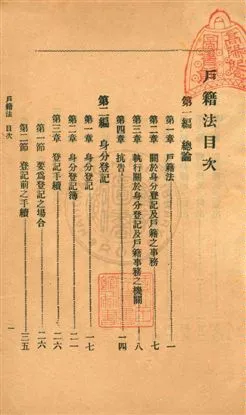 戶籍法目次
第一編　總論
第一章　戶籍法……一
第二章　關於身分登記及戶籍之事務……七
第三章　執行關於身分登記及戶籍事務之機關……八
第四章　抗告……一四
第二編　身分登記
第一章　身分登記……一七
第二章　身分登記簿……二一
第三章　登記手續……二六
第一節　要爲登記之場合……二六
第二節　登記前之手續……三五
戶籍法　目次
一